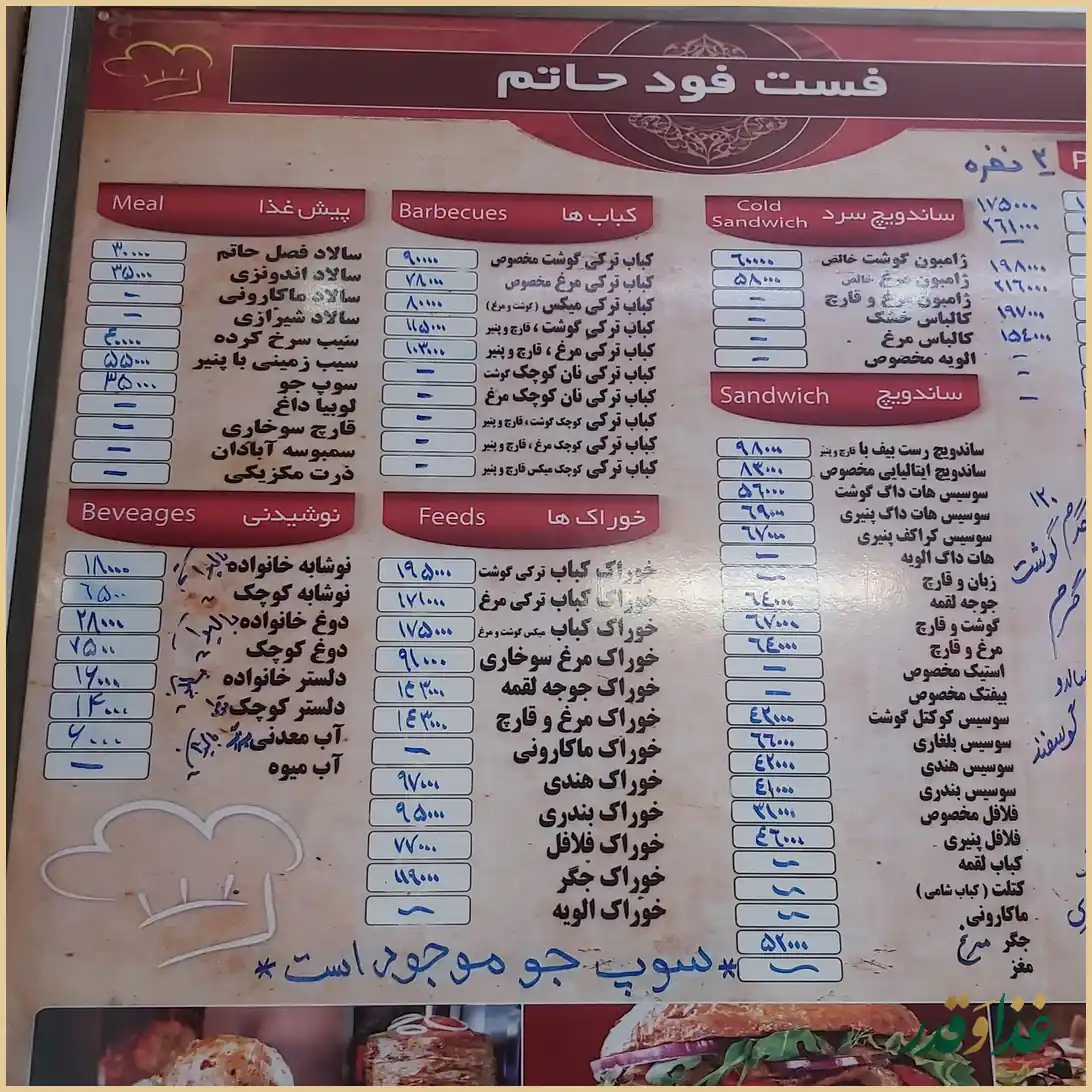 فست فود حاتم
۲ نفره
۱۷۵۰۰۰
۲۶۱۰۰۰
۱۹۸۰۰۰
۲۱۶۰۰۰
۱۹۷۰۰۰
۱۵۴۰۰۰
-
-
ساندویچ سرد Cold Sandwich
ژامبون گوشت خالص ۶۰۰۰۰
ژامبون مرغ خالص ۵۸۰۰۰
ژامبون مرغ و قارچ -
کالباس خشک -
کالباس مرغ -
الویه مخصوص -
ساندویچ Sandwich
ساندویچ رست بیف با قارچ و پنیر ۹۸۰۰۰
ساندویچ ایتالیایی مخصوص ۸۳۰۰۰
سوسیس هات داگ گوشت ۵۶۰۰۰
سوسیس هات داگ پنیری ۶۹۰۰۰
سوسیس کراکف پنیری ۶۷۰۰۰
هات داگ الویه -
زبان و قارچ -
جوجه لقمه ۶۴۰۰۰
گوشت و قارچ ۶۷۰۰۰
مرغ و قارچ ۶۴۰۰۰
استیک مخصوص -
بیفتک مخصوص -
سوسیس کوکتل گوشت ۴۲۰۰۰
سوسیس بلغاری ۶۶۰۰۰
سوسیس هندی ۴۲۰۰۰
سوسیس بندری ۴۱۰۰۰
فلافل مخصوص ۳۱۰۰۰
فلافل پنیری ۴۶۰۰۰
کباب لقمه -
کتلت ( کباب شامی ) -
ماکارونی -
جگر مرغ ۵۲۰۰۰
مغز -
کباب ها Barbecues
کباب ترکی گوشت مخصوص ۹۰۰۰۰
کباب ترکی مرغ مخصوص ۷۸۰۰۰
کباب ترکی میکس (گوشت و مرغ) ۸۰۰۰۰
کباب ترکی گوشت ، قارچ و پنیر ۱۱۵۰۰۰
کباب ترکی مرغ ، قارچ و پنیر ۱۰۳۰۰۰
کباب ترکی نان کوچک گوشت -
کباب ترکی نان کوچک مرغ -
کباب ترکی کوچک گوشت ، قارچ و پنیر -
کباب ترکی کوچک مرغ ، قارچ و پنیر -
کباب ترکی کوچک میکس قارچ و پنیر -
خوراک ها Feeds
خوراک کباب ترکی گوشت ۱۹۵۰۰۰
خوراک کباب ترکی مرغ ۱۷۱۰۰۰
خوراک کباب میکس گوشت و مرغ ۱۷۵۰۰۰
خوراک مرغ سوخاری ۹۱۰۰۰
خوراک جوجه لقمه ۱۴۳۰۰۰
خوراک مرغ و قارچ ۱۴۳۰۰۰
خوراک ماکارونی -
خوراک هندی ۹۷۰۰۰
خوراک بندری ۹۵۰۰۰
خوراک فلافل ۷۷۰۰۰
خوراک جگر ۱۱۹۰۰۰
خوراک الویه -
پیش غذا Meal
سالاد فصل حاتم ۳۰۰۰۰
سالاد اندونزی ۳۵۰۰۰
سالاد ماکارونی -
سالاد شیرازی -
سیب سرخ کرده ۴۰۰۰۰
سیب زمینی با پنیر ۵۵۰۰۰
سوپ جو ۳۵۰۰۰
لوبیا داغ -
قارچ سوخاری -
سمبوسه آبادان -
ذرت مکزیکی -
نوشیدنی Beveages
نوشابه خانواده ۱۸۰۰۰
نوشابه کوچک ۶۵۰۰
دوغ خانواده ۲۸۰۰۰
دوغ کوچک ۷۵۰۰
دلستر خانواده ۱۶۰۰۰
دلستر کوچک ۱۴۰۰۰
آب معدنی ۶۰۰۰
آب میوه -
*سوپ جو موجود است*
۱۲۰
گرم گوشت
گرم
گوسفند
غذا و قدر